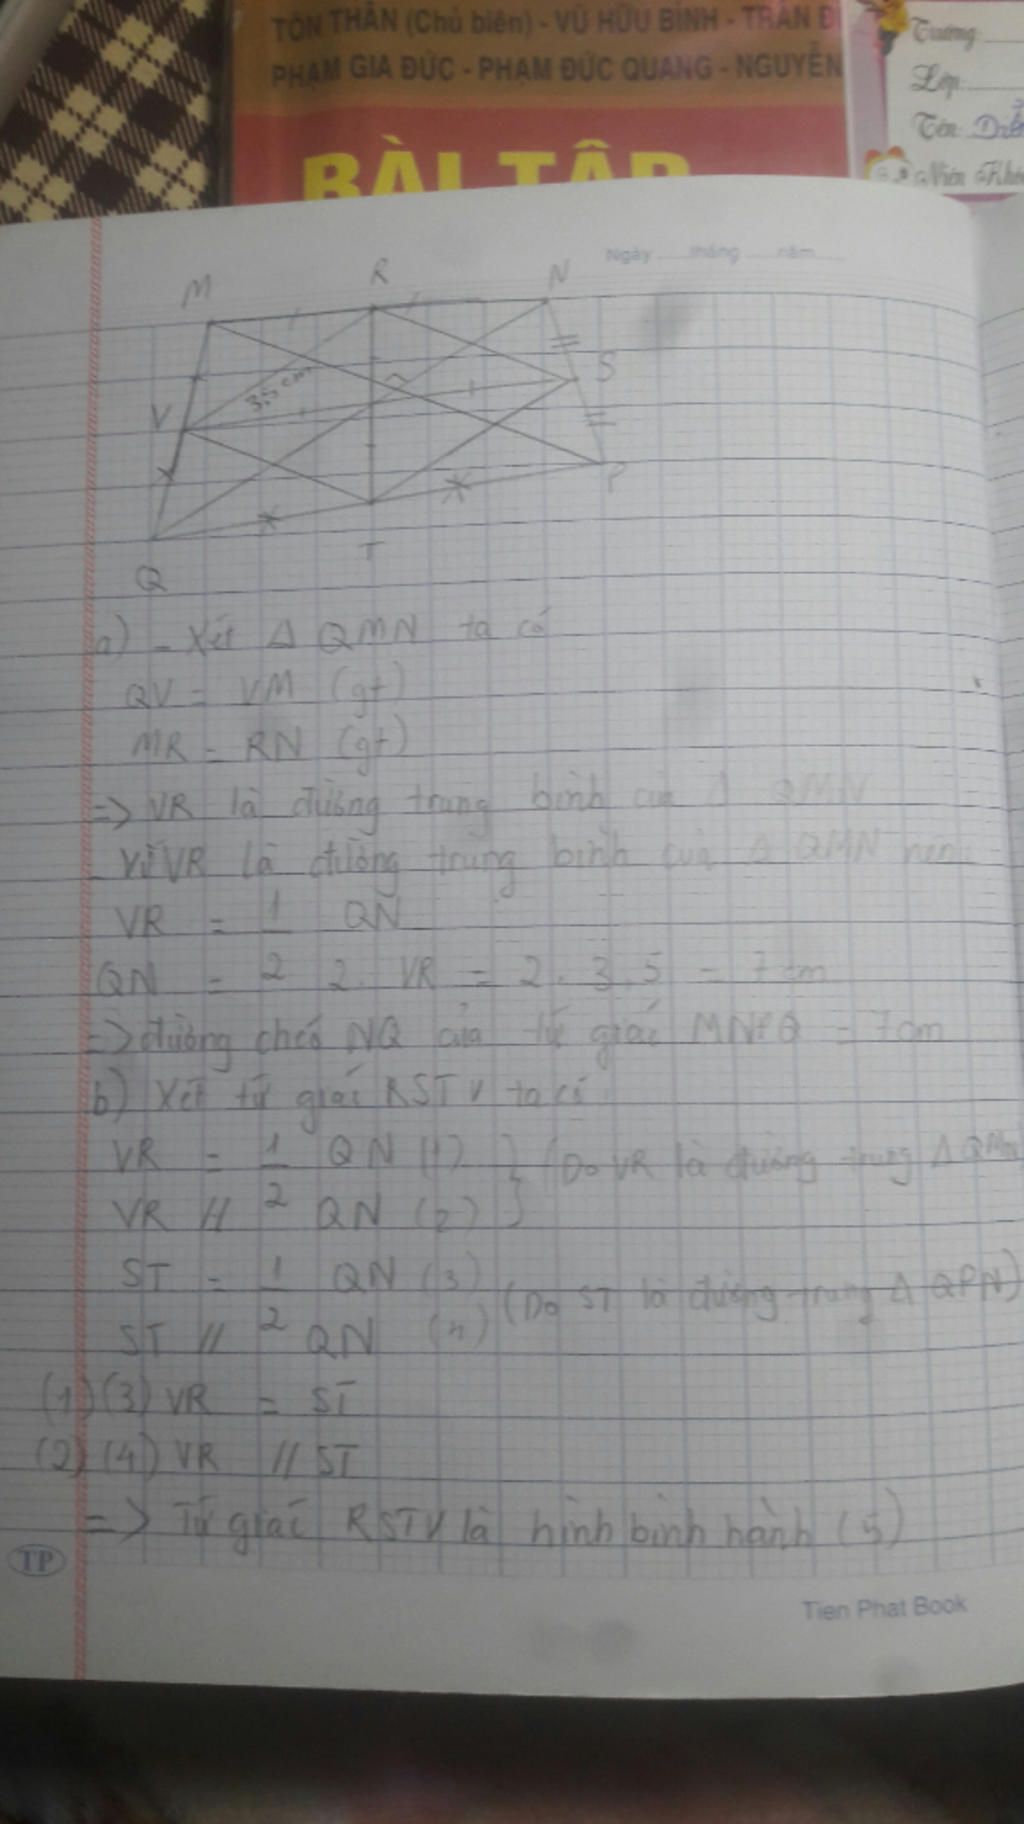 TÔN THÂN (Chủ biên) - VŨ HỮU BÌNH - TRẦN Đ
PHẠM GIA ĐỨC - PHẠM ĐỨC QUANG - NGUYỄN
BÀI TẬP
Trường:
Lớp:
Tên:
Niên Khó
Ngày tháng năm
M R N
3,5 cm
V S
P
T
Q
a) - Xét Δ QMN ta có
QV = VM (gt)
MR = RN (gt)
=> VR là đường trung bình của Δ QMN
Vì VR là đường trung bình của Δ QMN nên
VR = 1/2 QN
QN = 2. VR = 2. 3,5 = 7 cm
=> đường chéo NQ của tứ giác MNPQ = 7cm
b) Xét tứ giác RSTV ta có
VR = 1/2 QN (1) } (Do VR là đường trung Δ QMN)
VR // QN (2) }
ST = 1/2 QN (3) (Do ST là đường trung Δ QPN)
ST // QN (4)
(1) (3) VR = ST
(2) (4) VR // ST
=> Tứ giác RSTV là hình bình hành (5)
TP
Tien Phat Book